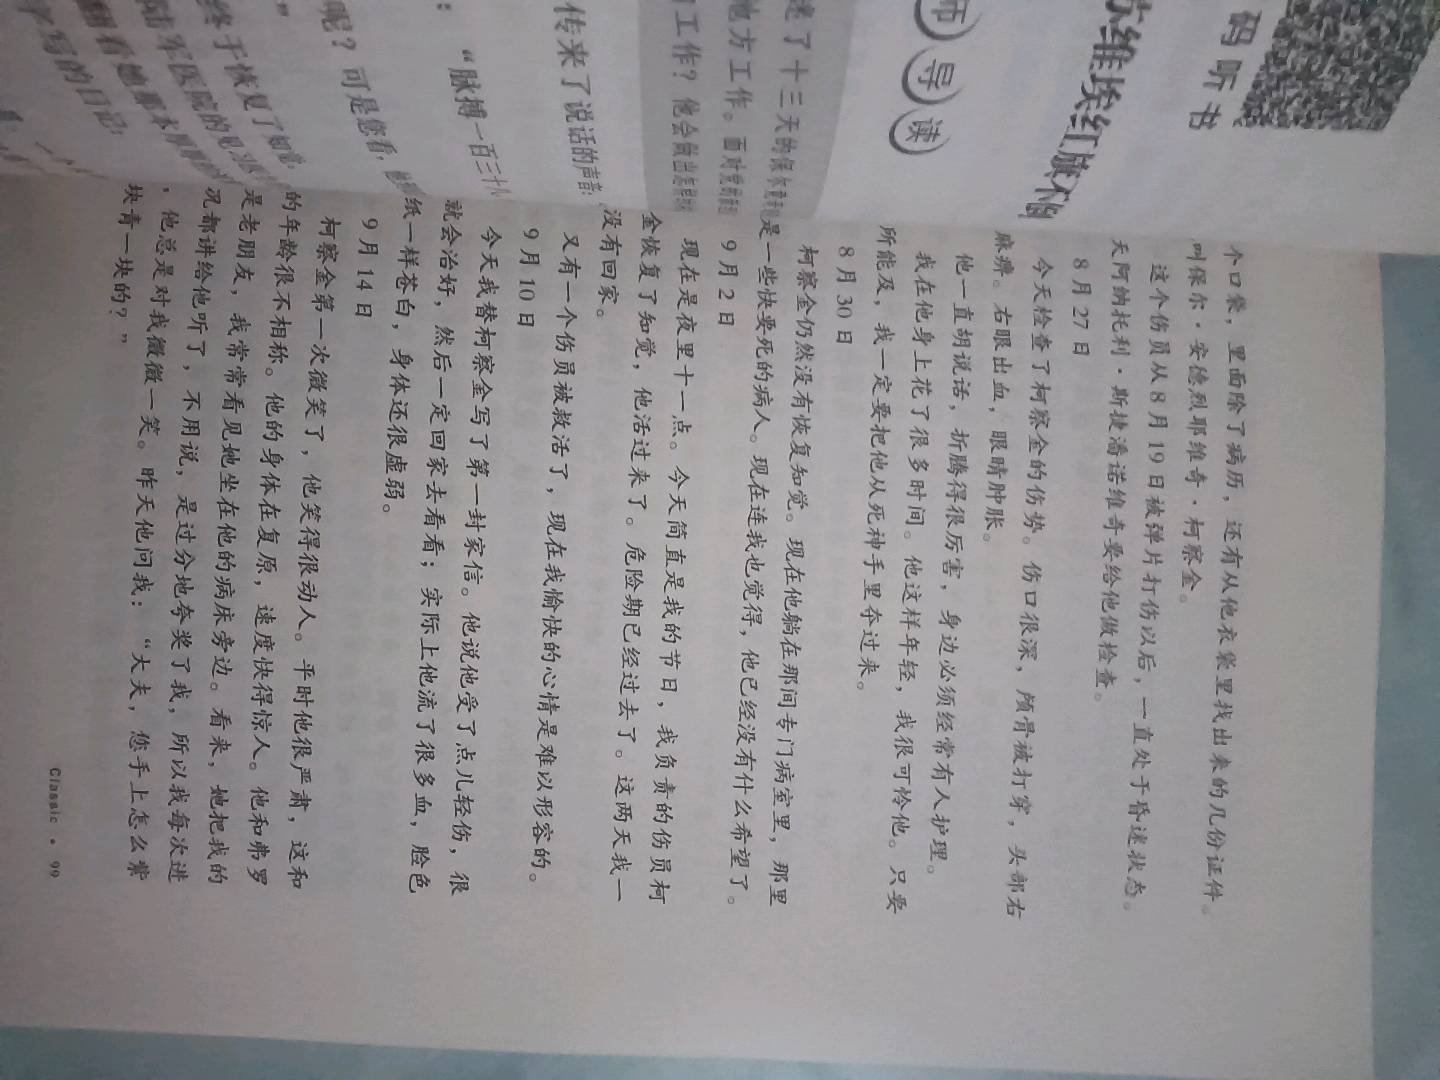 码听书
苏维埃红旗不
师导读
过了十三天的
地方工作。面对
工作？他会做出
传来了说话的声音：
：“脉搏一百三十八
呢？可是您看，
”
终于恢复了知觉：
陆军医院的见习
翻看她那本厚厚的
写的日记：
个口袋，里面除了病历，还有从他衣袋里找出来的几份证件。
叫保尔·安德烈耶维奇·柯察金。
这个伤员从8月19日被弹片打伤以后，一直处于昏迷状态。
天阿纳托利·斯捷潘诺维奇要给他做检查。
8月27日
今天检查了柯察金的伤势。伤口很深，颅骨被打穿，头部右
麻痹。右眼出血，眼睛肿胀。
他一直胡说话，折腾得很厉害，身边必须经常有人护理。
我在他身上花了很多时间。他这样年轻，我很可怜他。只要
所能及，我一定要把他从死神手里夺过来。
8月30日
柯察金仍然没有恢复知觉。现在他躺在那间专门病室里，那里
是一些快要死的病人。现在连我也觉得，他已经没有什么希望了。
9月2日
现在是夜里十一点。今天简直是我的节日，我负责的伤员柯
金恢复了知觉，他活过来了。危险期已经过去了。这两天我一
没有回家。
又有一个伤员被救活了，现在我愉快的心情是难以形容的。
9月10日
今天我替柯察金写了第一封家信。他说他受了点儿轻伤，很
就会治好，然后一定回家去看看；实际上他流了很多血，脸色
纸一样苍白，身体还很虚弱。
9月14日
柯察金第一次微笑了，他笑得很动人。平时他很严肃，这和
的年龄很不相称。他的身体在复原，速度快得惊人。他和弗罗
是老朋友，我常常看见她坐在他的病床旁边。看来，她把我的
况都讲给他听了，不用说，是过分地夸奖了我，所以我每次进
，他总是对我微微一笑。昨天他问我：“大夫，您手上怎么紫
块青一块的？”
Classic · 99